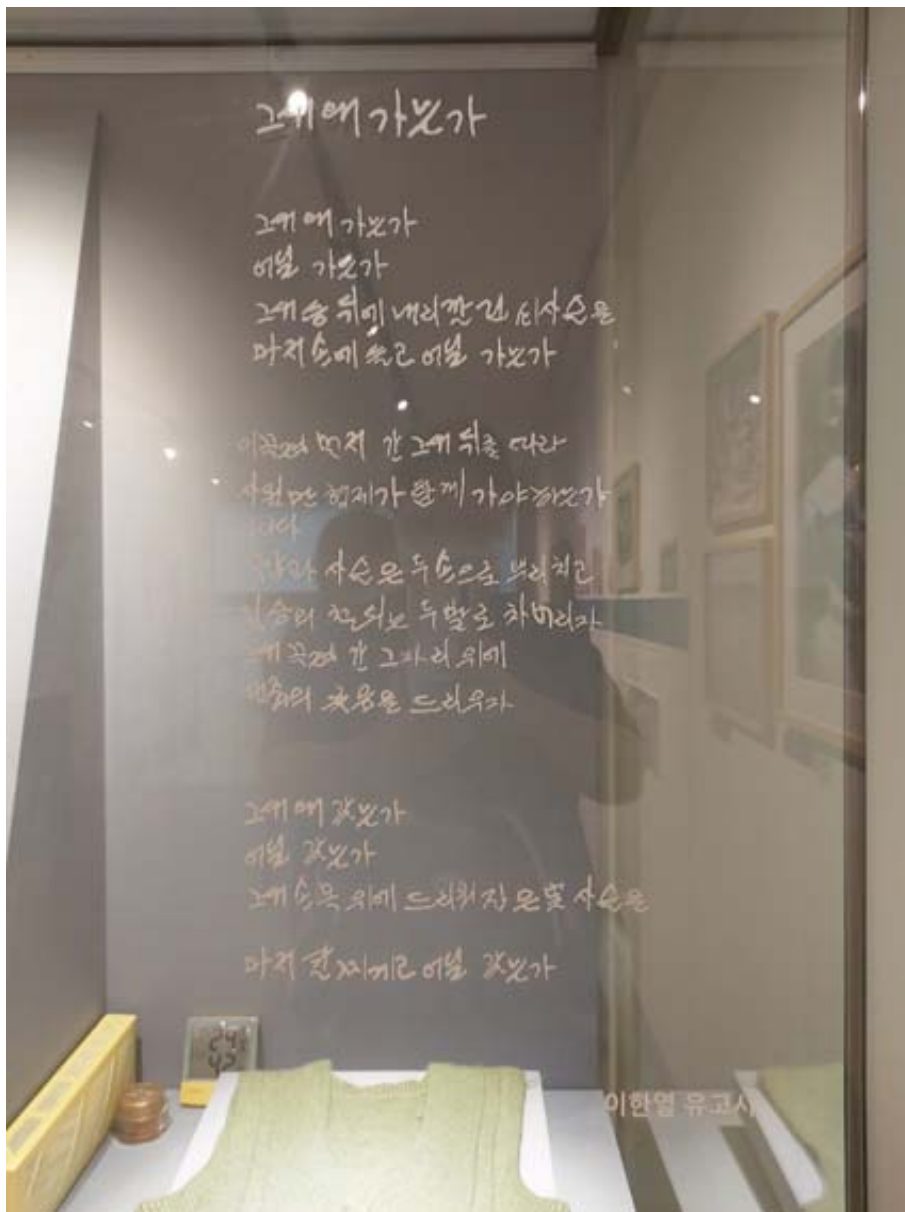 그대 왜 가는가
그대 왜 가는가
어딜 가는가
그대 등 뒤에 내리깔린 쇠사슬을
마저 손에 들고 어딜 가는가
이끌려 먼저 간 그대 뒤를 따라
사천만 형제가 함께 가야하는가
아니다
사슬은 두 손으로 뿌리치고
짐승의 철퇴는 두발로 차버리자
그대 끌려 간 그자리 위에
민중의 웃음을 드리우자
그대 왜 갔는가
어딜 갔는가
그대 손목 위에 드리워진 은빛 사슬을
마저 팔찌끼고 어딜 갔는가
이한열 유고시